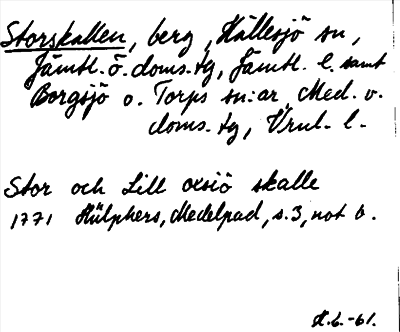 Storskallen, berg, Hällesjö sn,
Jämtl. ö. doms. tg, Jämtl. l. samt
Borgsjö o. Torps sn:ar, Med. v.
doms. tg, Vnul. l.
Stor och Lill oxsiö skalle
1771 Hülphers, Medelpad, s. 3, not b.
H. L. -61.